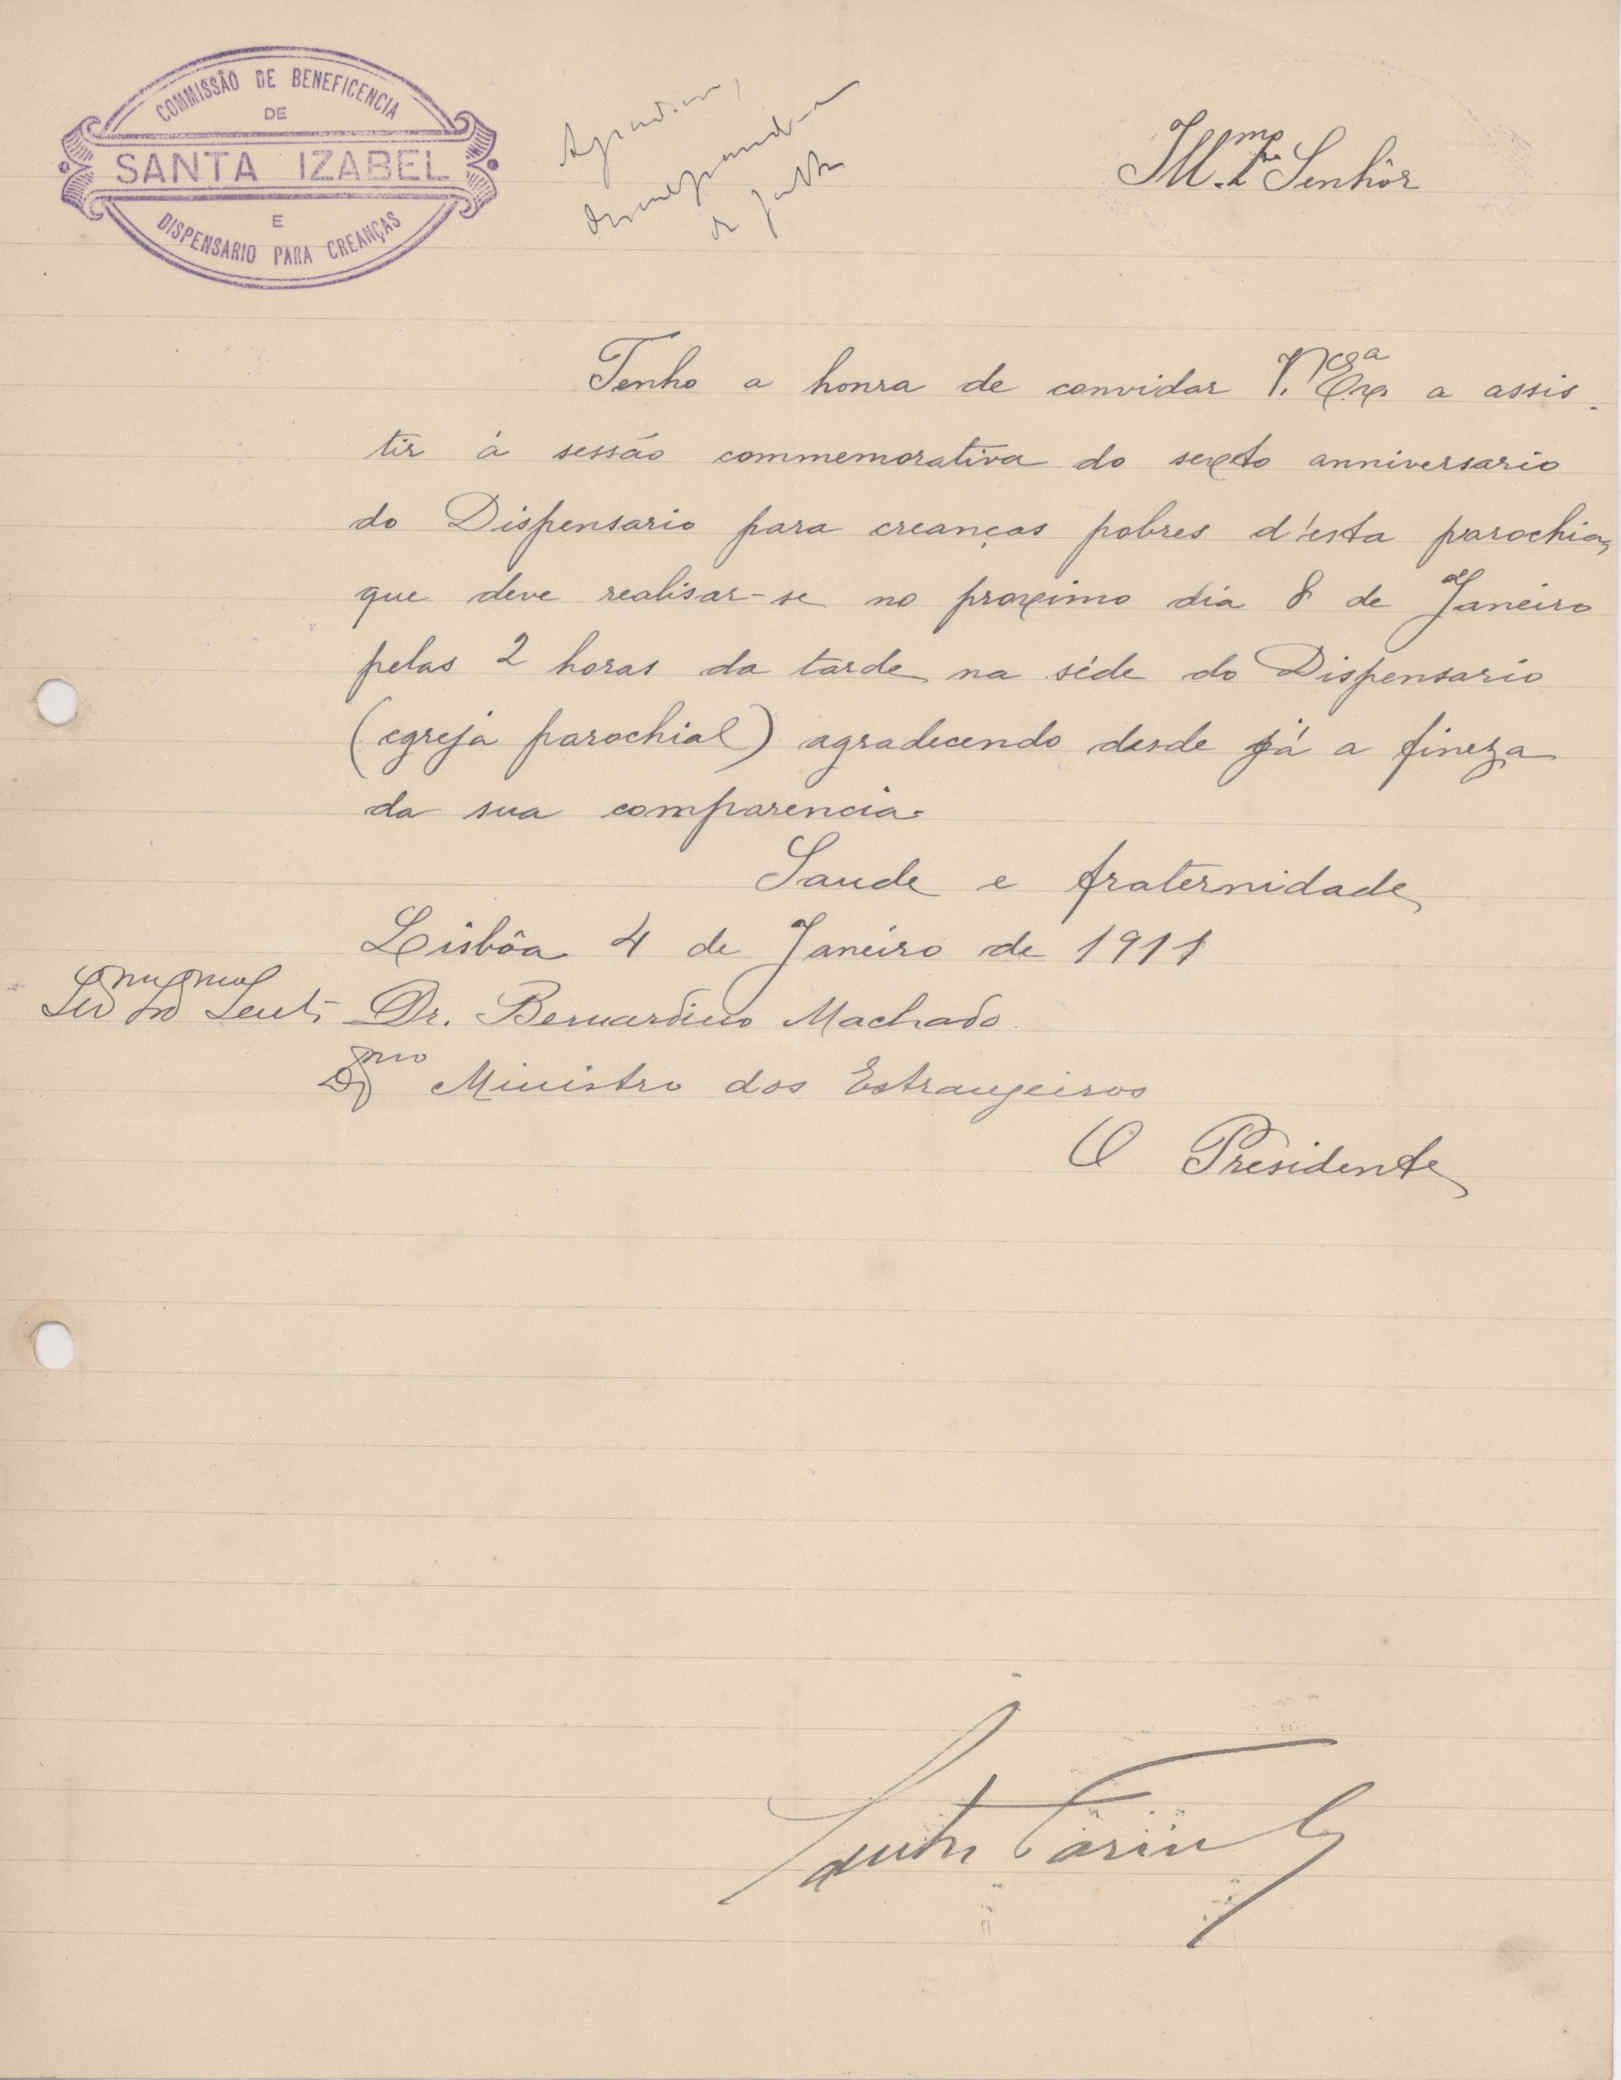 COMMISSÃO DE BENEFICENCIA
DE
SANTA IZABEL
E
DISPENSARIO PARA CREANÇAS
Ill.mo Senhôr
Tenho a honra de convidar V. Exa a assis-
tir á sessão commemorativa do sexto anniversario
do Dispensario para creanças pobres d'esta parochia,
que deve realisar-se no proximo dia 8 de Janeiro
pelas 2 horas da tarde na séde do Dispensario
(egreja parochial) agradecendo desde já a fineza
da sua comparencia.
Saude e fraternidade
Lisbôa 4 de Janeiro de 1911
Dr. Bernardino Machado
Dgmo Ministro dos Estrangeiros
O Presidente
Santos Farinha